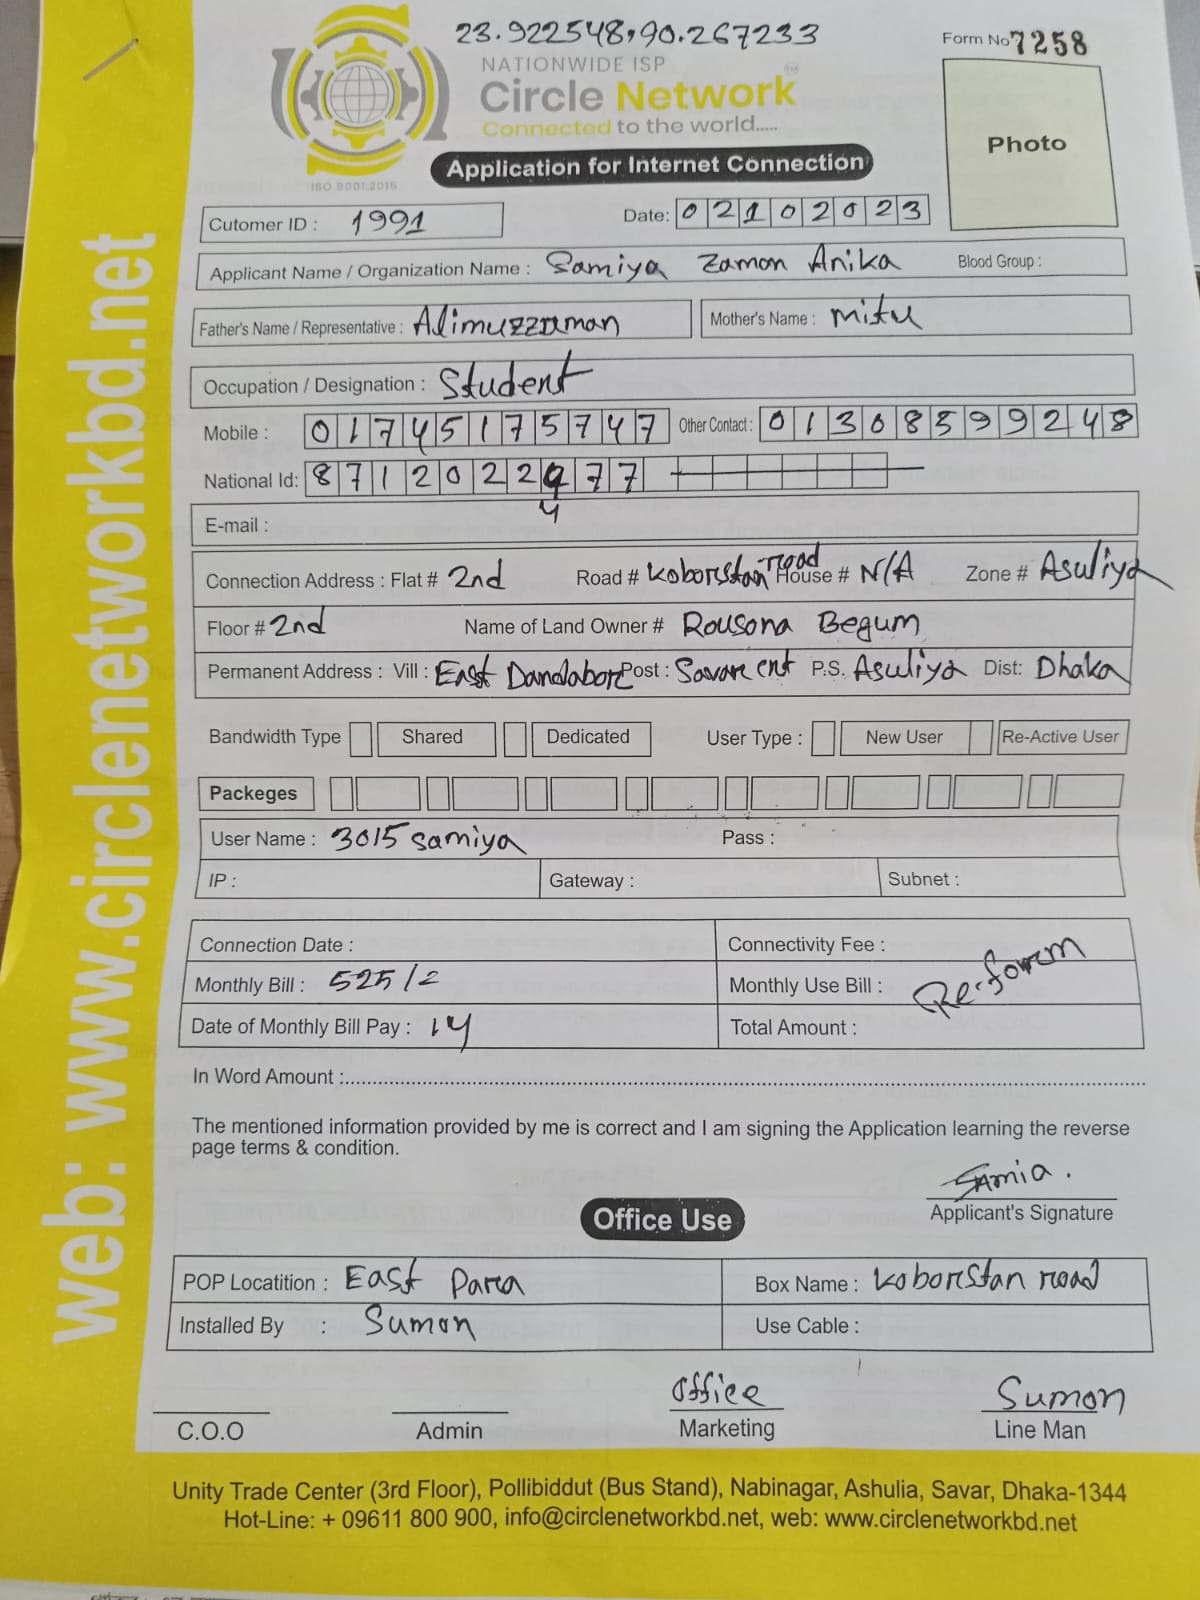 23.922548,90.267233
Form No 7258
NATIONWIDE ISP
Circle Network
Connected to the world.....
ISO 9001:2015
Photo
Application for Internet Connection
Cutomer ID : 1991
Date: 02102023
Applicant Name / Organization Name : Samiya Zamon Anika Blood Group :
Father's Name / Representative : Alimuzzaman Mother's Name : Mitu
Occupation / Designation : Student
Mobile : 01745175747 Other Contact : 01308599248
National Id: 8712022477
E-mail :
Connection Address : Flat # 2nd Road # Koborstan road House # N/A Zone # Asuliya
Floor # 2nd Name of Land Owner # Rousona Begum
Permanent Address : Vill : East Dandabor Post : Savar cnt P.S. Asuliya Dist: Dhaka
Bandwidth Type Shared Dedicated User Type : New User Re-Active User
Packeges
User Name : 3015 samiya Pass :
IP : Gateway : Subnet :
Connection Date : Connectivity Fee :
Monthly Bill : 525/2 Monthly Use Bill : Re-form
Date of Monthly Bill Pay : 14 Total Amount :
In Word Amount :
The mentioned information provided by me is correct and I am signing the Application learning the reverse
page terms & condition.
Samia.
Applicant's Signature
Office Use
POP Locatition : East Para Box Name : Koborstan road
Installed By : Sumon Use Cable :
Office Sumon
C.O.O Admin Marketing Line Man
Unity Trade Center (3rd Floor), Pollibiddut (Bus Stand), Nabinagar, Ashulia, Savar, Dhaka-1344
Hot-Line: + 09611 800 900, info@circlenetworkbd.net, web: www.circlenetworkbd.net
web: www.circlenetworkbd.net